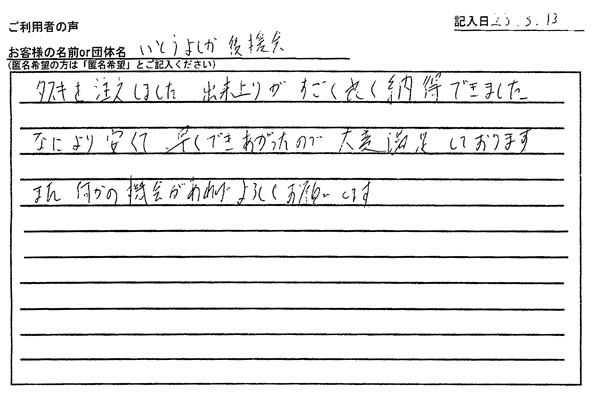 ご利用者の声
記入日 23.5.13
お客様の名前or団体名 いとうよしか 後援会
(匿名希望の方は「匿名希望」とご記入ください)
タスキを注文しました 出来上りが すごく良く 納得できました
なにより安くて 早くできあがったので 大変満足しております
また 何かの機会があれば よろしくお願いします